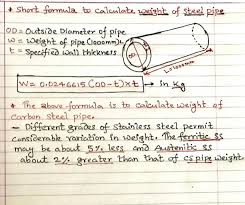 * Short formula to calculate weight of steel pipe
OD = Outside Diameter of pipe
W = Weight of pipe (1000mm)
t = Specified Wall thickness
L=1000mm
W = 0.0246615 (OD-t)xt → in Kg
* The above formula is to calculate weight of
carbon steel pipe.
- Different grades of Stainless steel permit
considerable variation in weight. The ferritic SS
may be about 5% less and Austenitic SS
about 2% greater than that of cs pipe weight